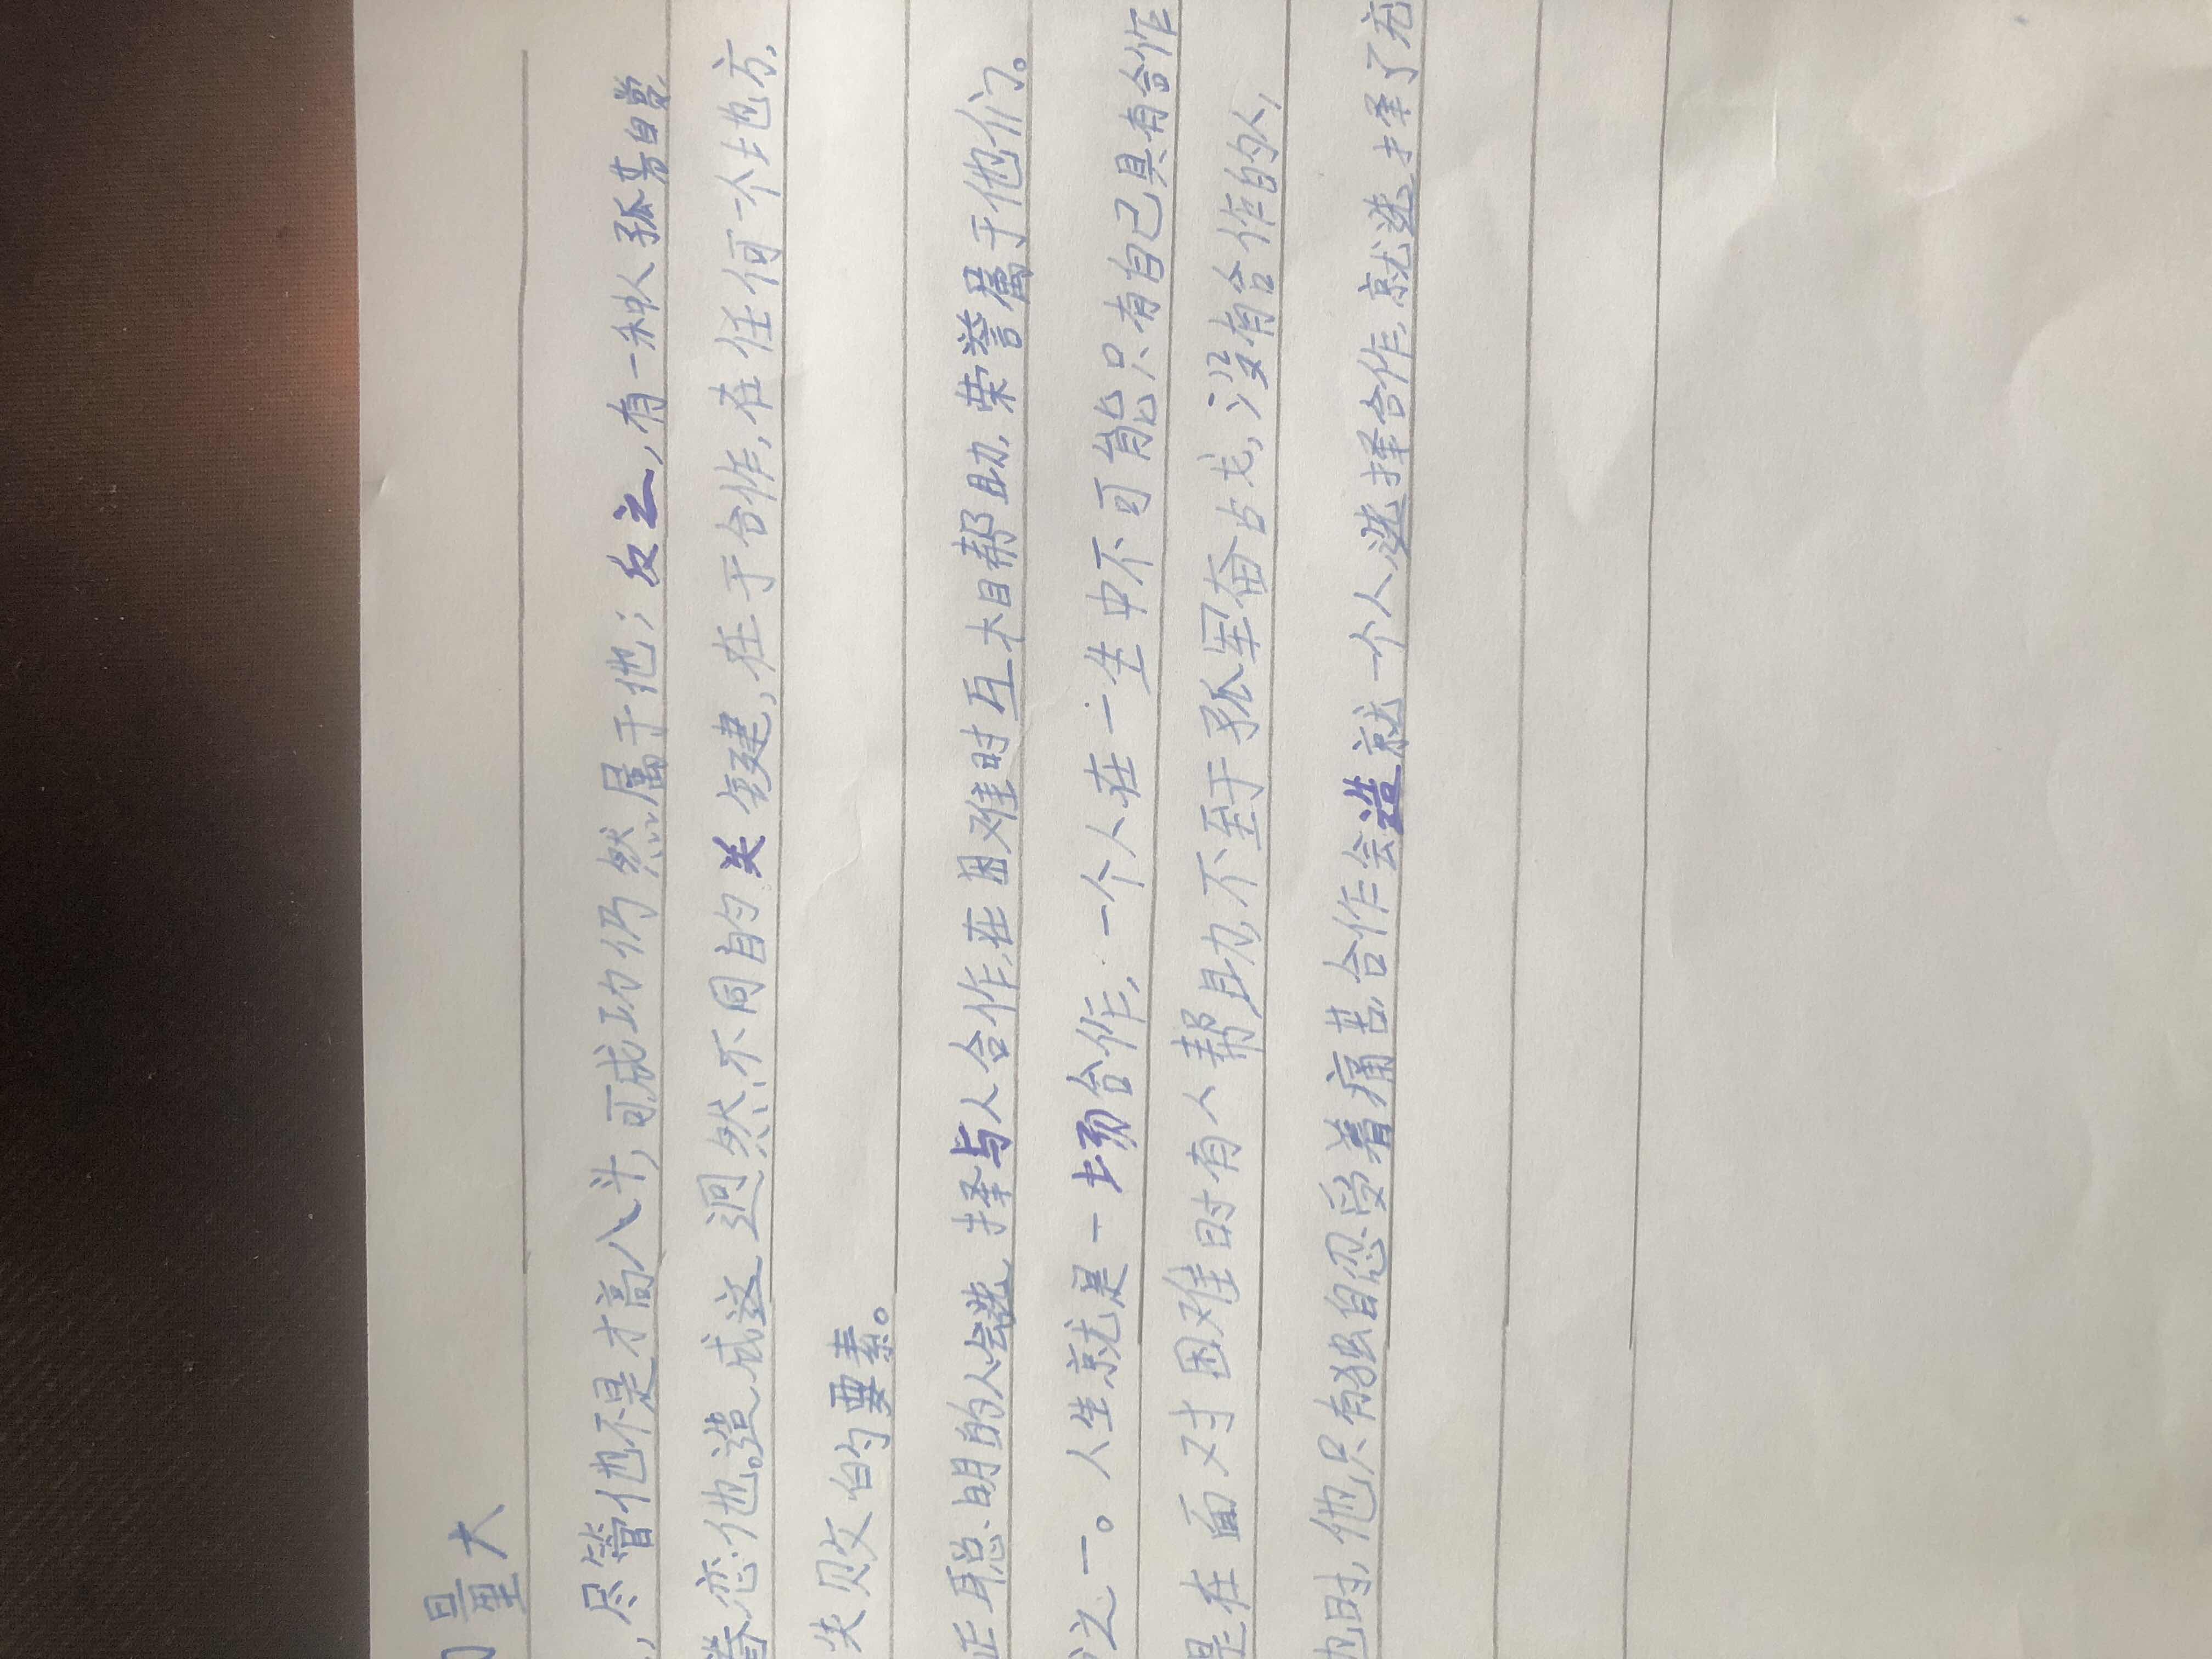 力量大
，尽管他不是才高八斗，可成功仍然属于他；反之，有一种人孤芳自赏
眷恋他。造成这迥然不同的关键，在于合作，在任何一个地方，
失败的要素。
正聪明的人会选择与人合作，在困难时互相帮助，荣誉属于他们。
之一。人生就是一场合作，一个人在一生中不可能只有自己具有合作
是在面对困难时有人帮助，不至于孤军奋战，没有合作的人，
他时，他只有独自忍受着痛苦。合作会造就一个人，选择合作，就选择了充